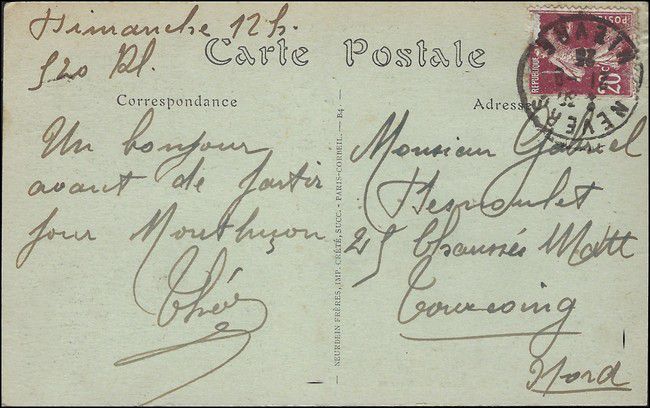 Dimanche 12h.
520 Rl.
Carte Postale
Correspondance
Adresse
Un bonjour
avant de partir
pour Montluçon
Théo
NEURDEIN FRÈRES, IMP. CRÉTÉ, SUCC. - PARIS-CORBEIL. - B4.
Monsieur Gabriel
Hesnoulet
25 Chaussés Matt
Tourcoing
Nord
REPUBLIQUE
20c
NEVERS
NIEVRE